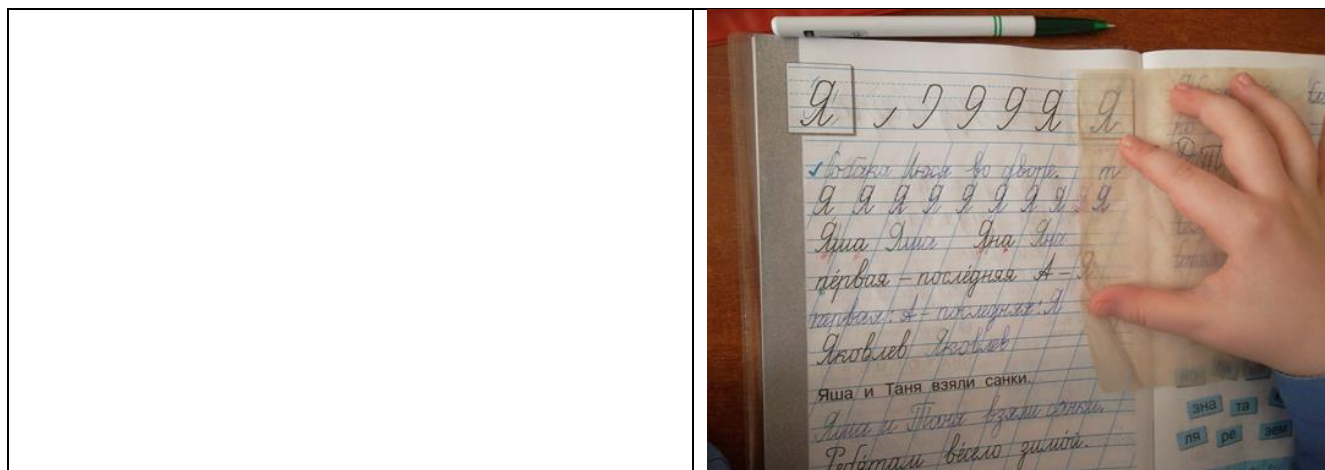 Я Я Я Я Я
Собака Люся во дворе. т
Я Я Я Я Я Я Я Я Я Я
Яша Яша Яна Яна
пе́рвая – после́дняя А – Я
первая: А – последняя: Я
Яковлев Яковлев
Яша и Таня взяли санки.
Яша и Таня взяли санки.
Ребя́там ве́село зимо́й.
зна та
ля ре зем